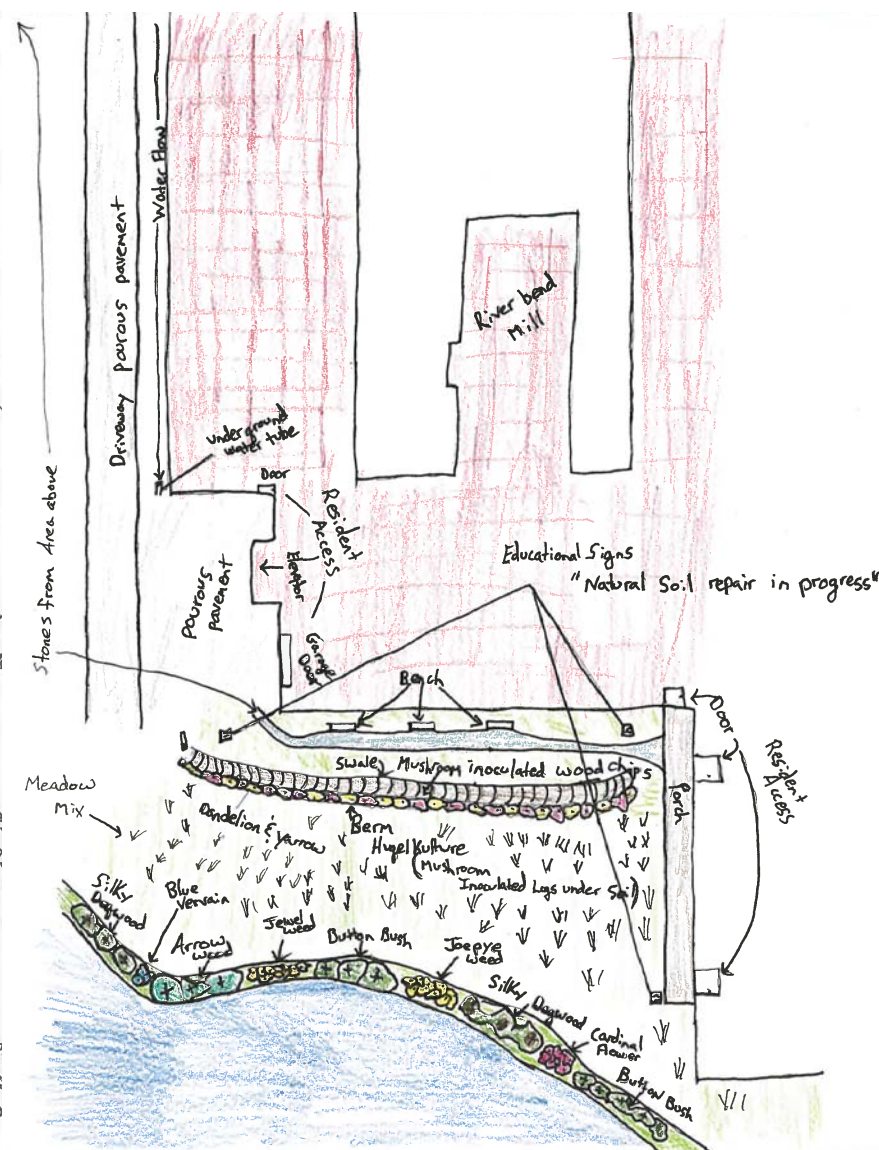 Water Flow
Driveway pourous pavement
River bend
Mill
underground
water tube
Door
Resident
Access
Elevator
Garage
Door
pourous
pavement
Stones from Area above
Educational Signs
"Natural Soil repair in progress"
Bench
Door
Resident
Access
Porch
Swale
Mushroom inoculated wood chips
Meadow
Mix
Dandelion & Yarrow
Berm
Hugel Kulture
(Mushroom
Inoculated Logs under Soil)
Silky
Dogwood
Blue
Vervain
Arrow
wood
Jewel
weed
Button Bush
Joepye
weed
Silky Dogwood
Cardinal
flower
Button Bush